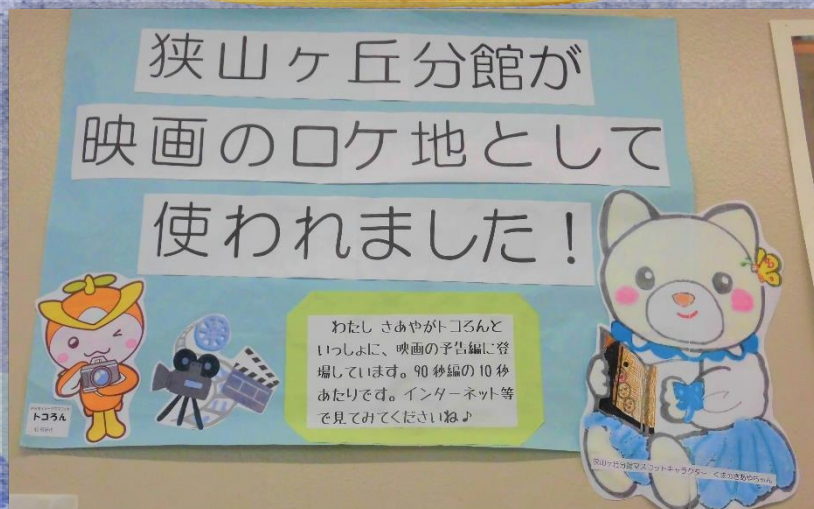 狭山ヶ丘分館が
映画のロケ地として
使われました！
わたし さあやがトコろんと
いっしょに、映画の予告編に登
場しています。90秒編の10秒
あたりです。インターネット等
で見てみてくださいね♪
トコろん
狭山ヶ丘分館マスコットキャラクター くまのさあやちゃん